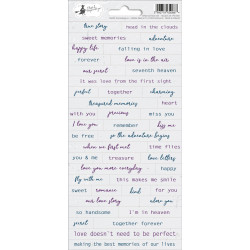 true story head in the clouds
sweet memories adventure
happy life falling in love
forever love is in the air
our secret seventh heaven
It was love from the first sight
perfect together charming
treasured memories heart
with you precious miss you
I love you remember kiss me
be free so the adventure begins
when we first met time flies
you & me treasure love letters
love you more everyday happy
fly with me this is what dreams are made of
sweet romance kind for you
our love story adore you
so handsome I'm in heaven
secret together forever
love doesn't need to be perfect.
making the best memories of our lives